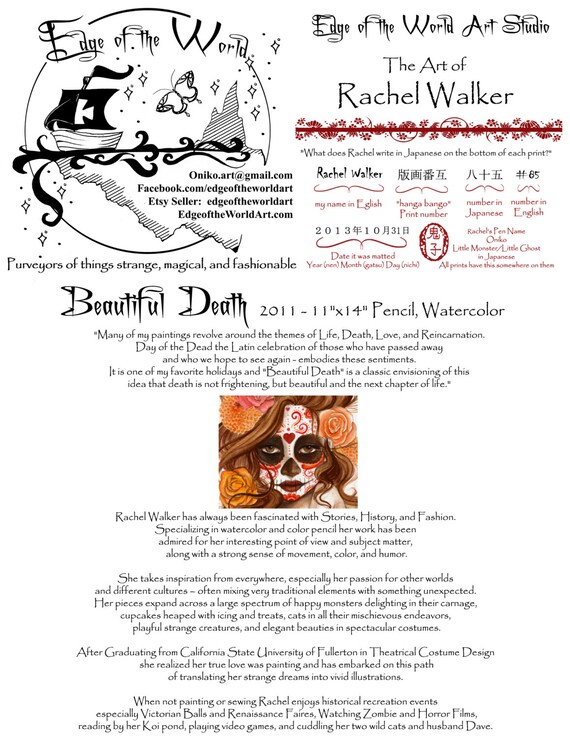 Edge of the World
Oniko.art@gmail.com
Facebook.com/edgeoftheworldart
Etsy Seller: edgeoftheworldart
EdgeoftheWorldArt.com
Purveyors of things strange, magical, and fashionable
Edge of the World Art Studio
The Art of
Rachel Walker
"What does Rachel write in Japanese on the bottom of each print?"
Rachel Walker 版画番互 八十五 #85
my name in Eglish
"hanga bango"
Print number
number in
Japanese
number in
English
2013年10月31日
Date it was matted
Year (nen) Month (gatsu) Day (nichi)
鬼子
Rachel's Pen Name
Oniko
Little Monster/Little Ghost
in Japanese
All prints have this somewhere on them
Beautiful Death 2011 - 11"x14" Pencil, Watercolor
"Many of my paintings revolve around the themes of Life, Death, Love, and Reincarnation.
Day of the Dead the Latin celebration of those who have passed away
and who we hope to see again - embodies these sentiments.
It is one of my favorite holidays and "Beautiful Death" is a classic envisioning of this
idea that death is not frightening, but beautiful and the next chapter of life."
Rachel Walker has always been fascinated with Stories, History, and Fashion.
Specializing in watercolor and color pencil her work has been
admired for her interesting point of view and subject matter,
along with a strong sense of movement, color, and humor.
She takes inspiration from everywhere, especially her passion for other worlds
and different cultures – often mixing very traditional elements with something unexpected.
Her pieces expand across a large spectrum of happy monsters delighting in their carnage,
cupcakes heaped with icing and treats, cats in all their mischievous endeavors,
playful strange creatures, and elegant beauties in spectacular costumes.
After Graduating from California State University of Fullerton in Theatrical Costume Design
she realized her true love was painting and has embarked on this path
of translating her strange dreams into vivid illustrations.
When not painting or sewing Rachel enjoys historical recreation events
especially Victorian Balls and Renaissance Faires, Watching Zombie and Horror Films,
reading by her Koi pond, playing video games, and cuddling her two wild cats and husband Dave.